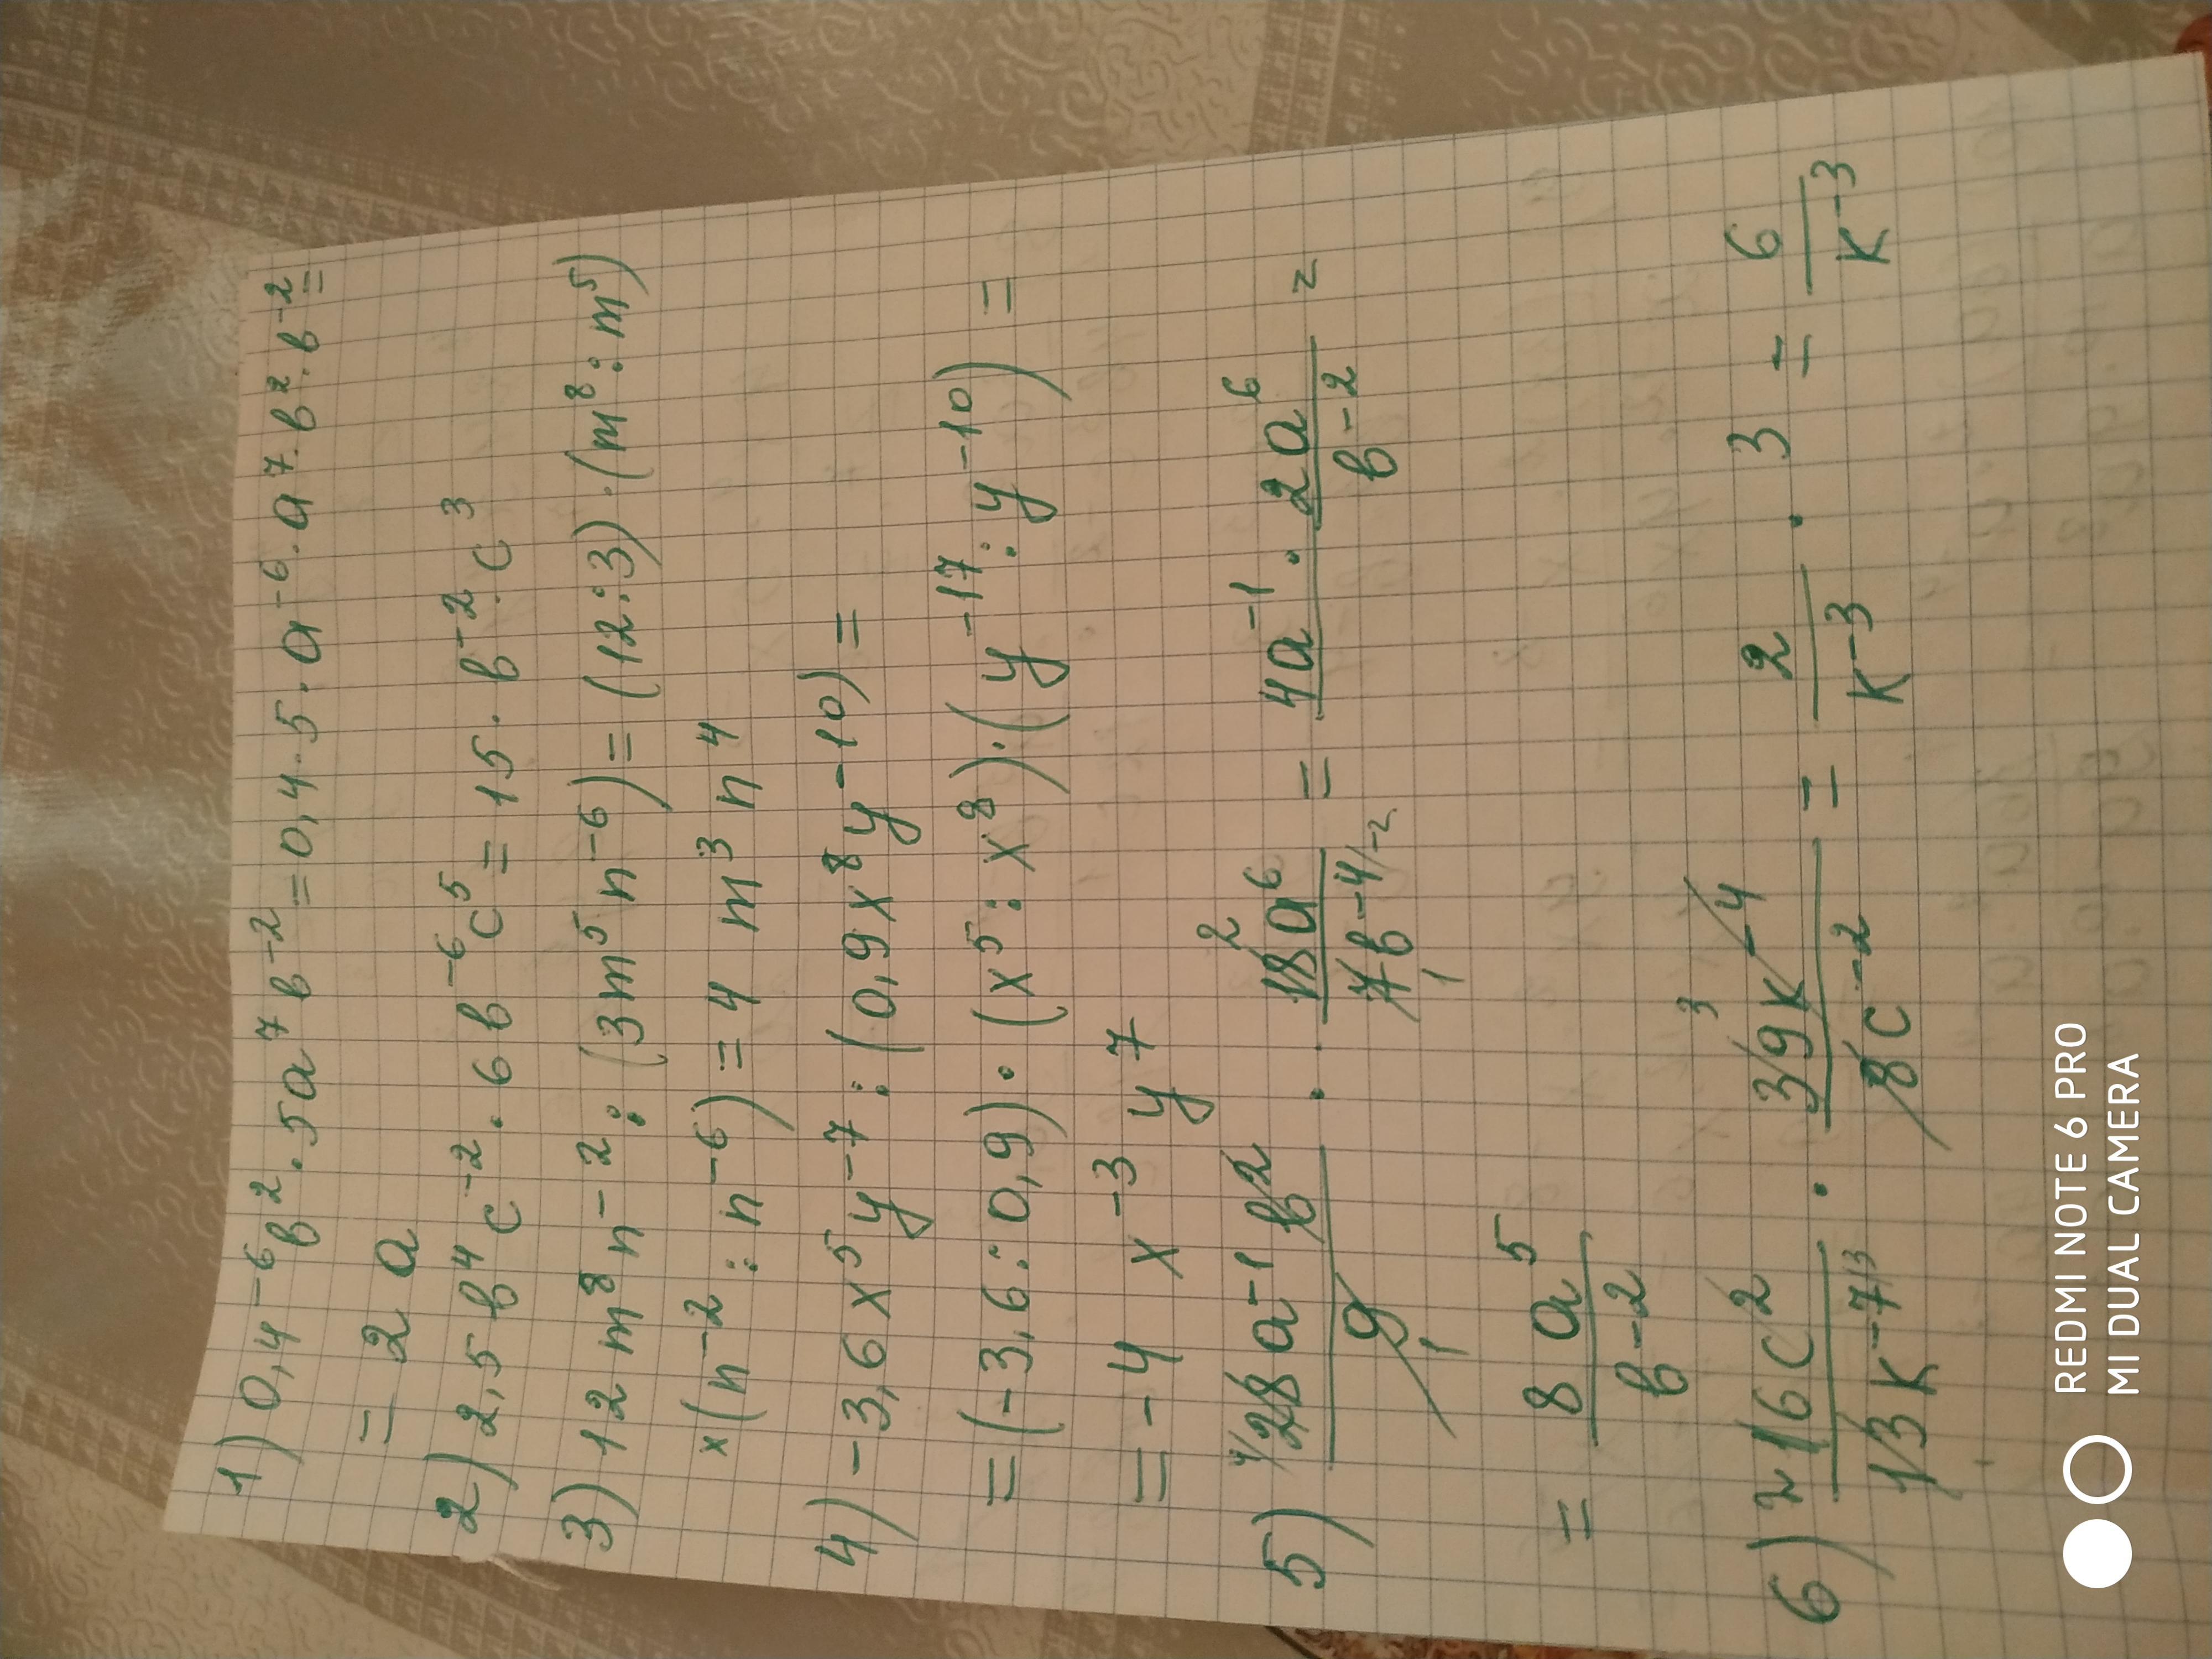 1) 0,4⁻⁶в²·5a⁷в⁻²=0,4·5·a⁻⁶·a⁷·в²·в⁻²=
= 2 a
2) 2,5 в⁴ c⁻²·6 в⁻⁶ c⁵ = 15·в⁻²·c³
3) 12 m⁸ n⁻² : (3 m⁵ n⁻⁶) = (12:3)·(m⁸:m⁵)
×(n⁻² : n⁻⁶) = 4 m³ n⁴
4) -3,6 x⁵ y⁻⁷ : (0,9 x⁸ y⁻¹⁰) =
= (-3,6:0,9)·(x⁵:x⁸)·(y⁻¹⁷:y⁻¹⁰) =
= -4 x⁻³ y⁷
5) ⁴28 a⁻¹ в² / 9 1 · ²18 a⁶ / 7 1 в⁻⁴/⁻² = 4a⁻¹·2a⁶ / в⁻² =
= 8 a⁵ / в⁻²
6) ²16 c² / 13 k⁻⁷/³ · ³39 k⁻⁴ / 8 c⁻² = 2 / k⁻³ · 3 = 6 / k⁻³
REDMI NOTE 6 PRO
MI DUAL CAMERA